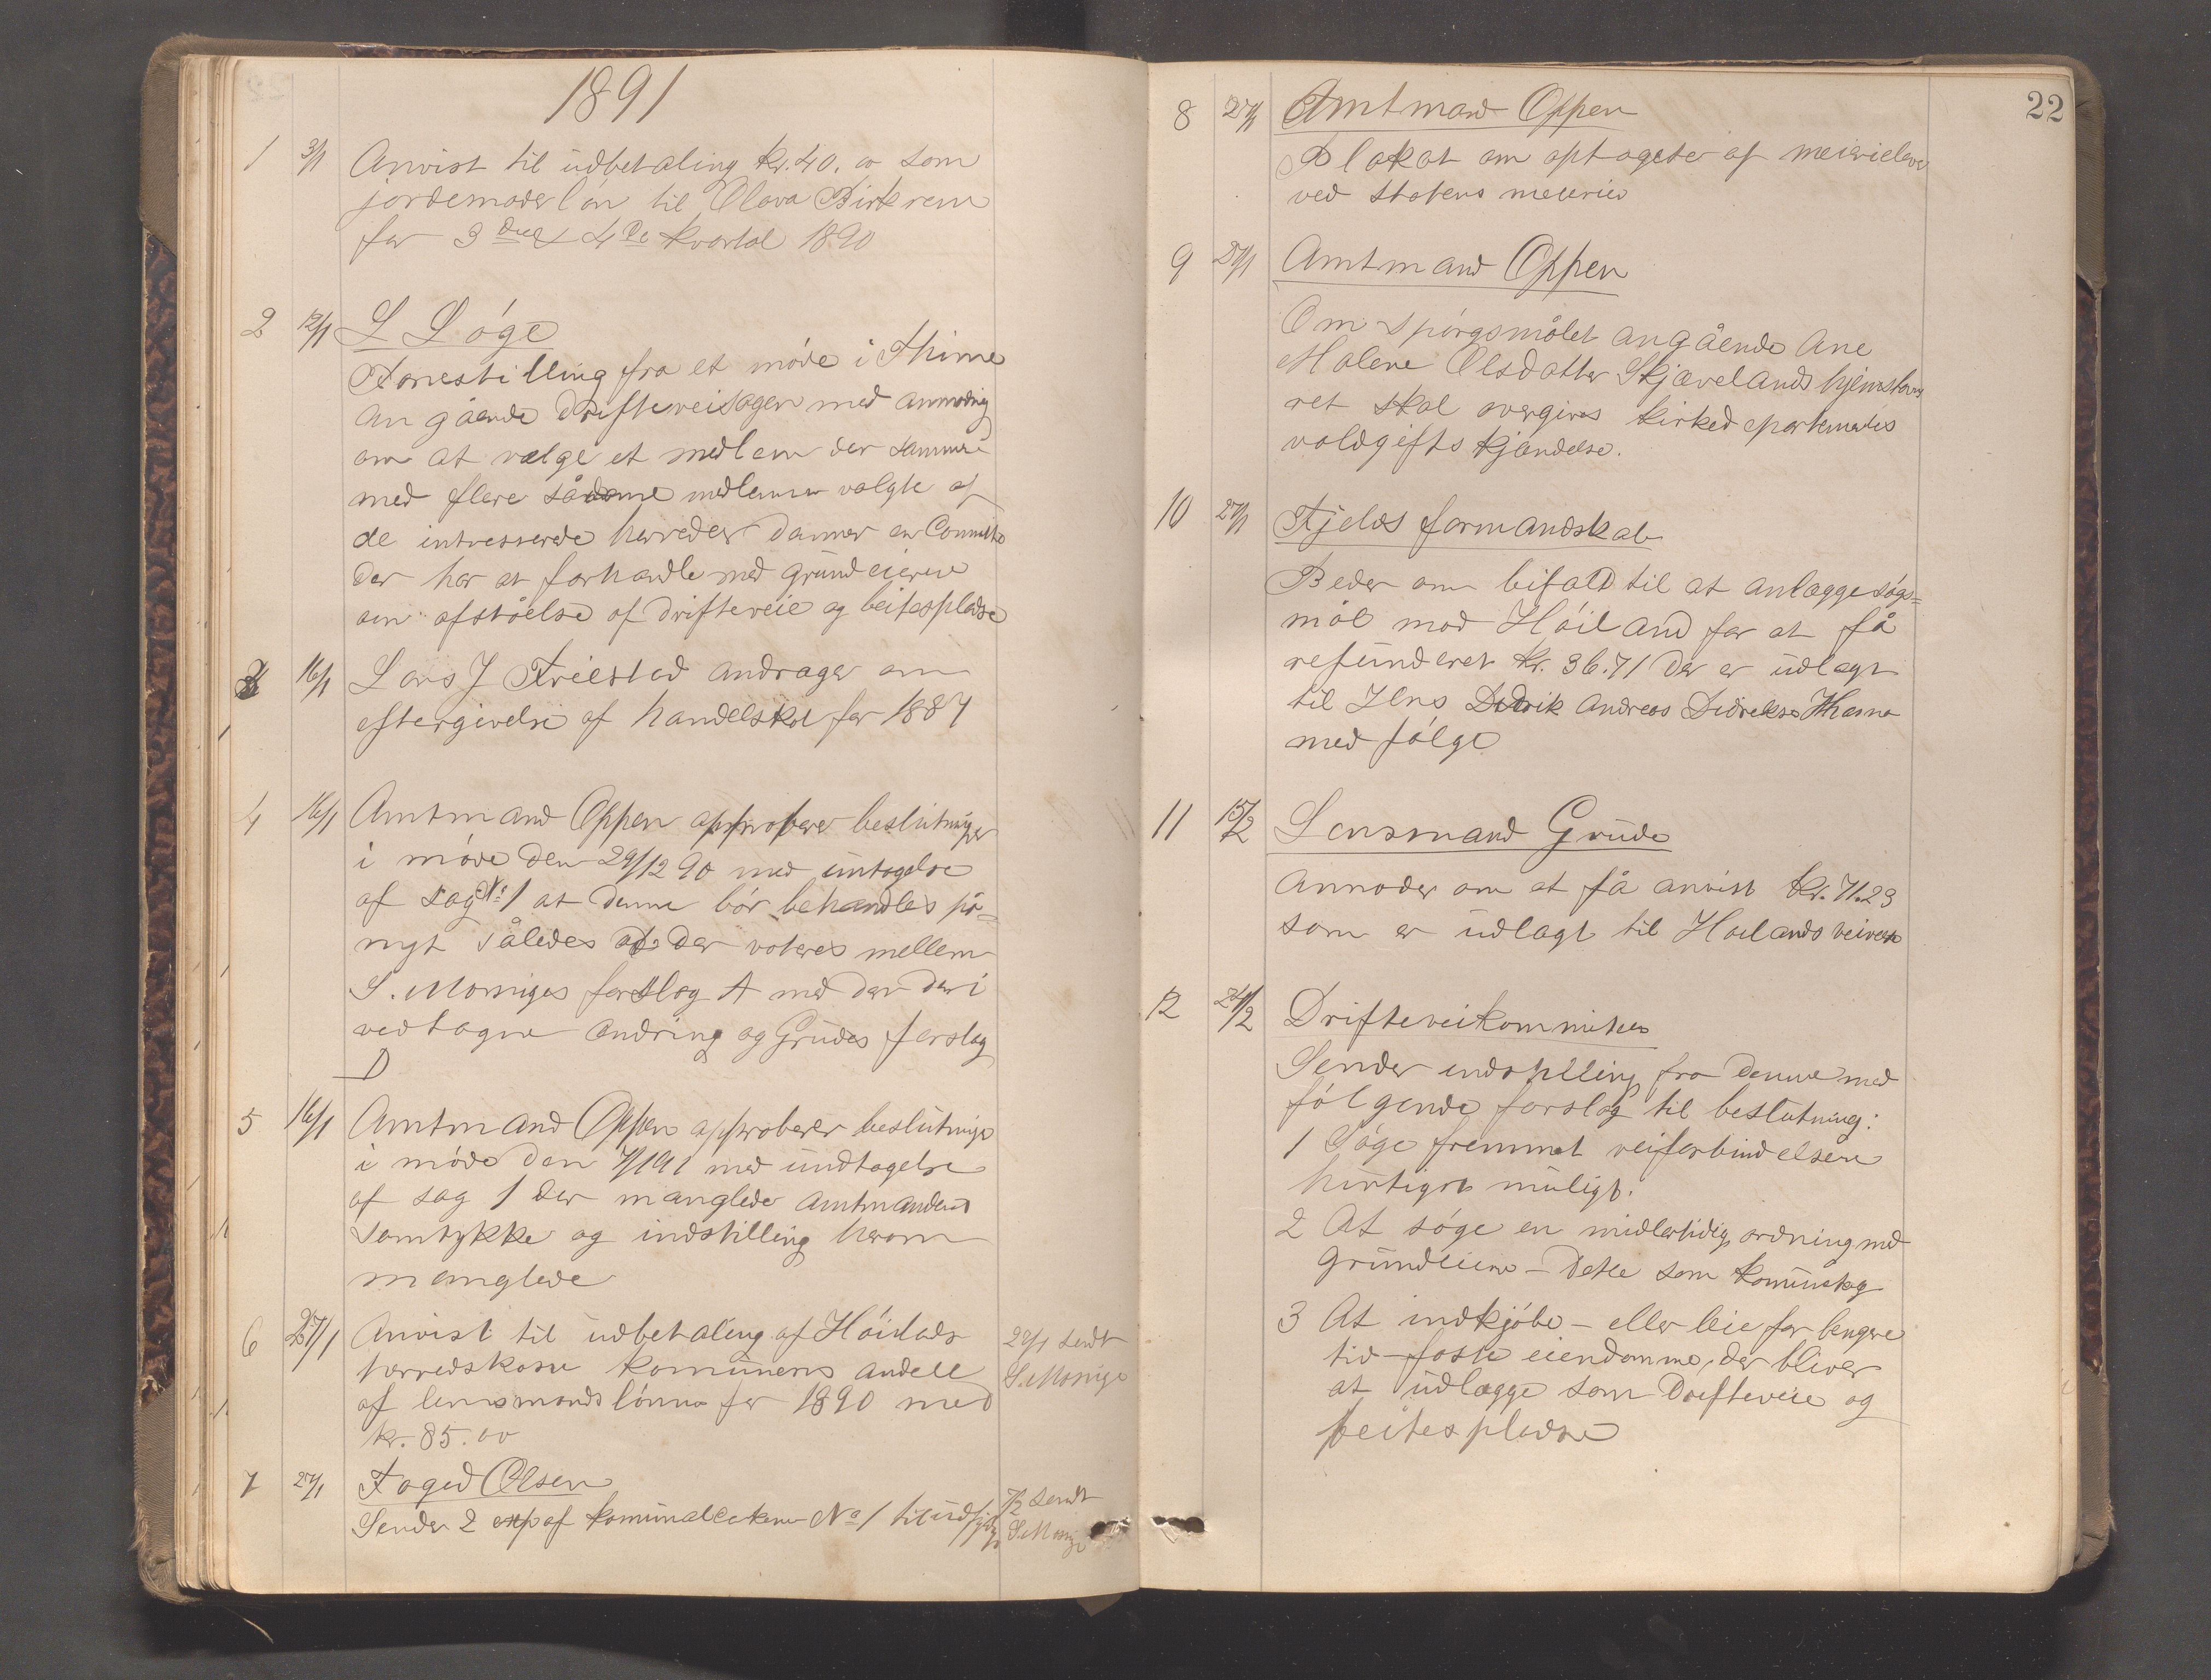 1891
1 3/1 Anvist til udbetaling kr. 40.00 som
jordemoderløn til Olava Birkrem
for 3die & 4de kvartal 1890
2 12/1 L Løge
Forestilling fra et møde i Thime
angående drifteveisagen med anmodning
om at vælge et medlem der sammen
med flere sådanne medlemer valgte af
de intresserede herreder danner en Committe
der har at forhandle med grundeierne
om afståelse af drifteveie og beitespladse
3 16/1 Lars J Friestad andrager om
eftergivelse af handelskat for 1887
4 16/1 Amtmand Oppen approberer beslutninger
i møde den 29/12 90 med untagelse
af sag No 1 at denne bør behandles på
nyt således at der voteres mellem
S. Mossiges forslag A med den deri
vedtagne ændring og Grudes forslag
D
5 16/1 Amtmand Oppen approberer beslutninge
i møde den 7/1 91 med undtagelse
af sag 1 der manglede amtmandens
samtykke og indstilling herom
manglede
6 27/1 Anvist til udbetaling af Høilands
herredskasse komunens andell
af lensmandslønne for 1890 med
kr. 85.00
27/1 sendt
S. Mossige
7 27/1 Foged Olsen
Sender 2 exp af komunalloven No 1 til
7/2 sendt
S. Mossige
22
8 27/1 Amtmand Oppen
Plakat om optagelse af meierielever
ved statens meierier
9 27/1 Amtmand Oppen
Om spørgsmålet angående Ane
Malene Olsdatter Skjævelands hjemstavns
ret skal overgives kirkedepartementes
voldgifts kjændelse.
10 27/1 Fjelds formandskab
Beder om bifald til at anlægge søgs=
mål mod Høiland for at få
refunderet kr. 36.71 der er udlagt
til Jens Didrik Andreas Didriksen
med følge
11 15/2 Lensmand Grude
Anmoder om at få anvist kr. 71.23
som er udlagt til Høilands veivæsen
12 24/2 Drifteveikommiteen
Sender indstilling fra denne med
følgende forslag til beslutning:
1 Søge fremmet veiforbindelsen
hurtigst muligt.
2 At søge en midlertidig ordning med
grundeierne – Dette som
3 At indkjøbe – eller leie for lengere
tid – faste eiendomme, der bliver
at udlægge som Drifteveie og
beitespladse